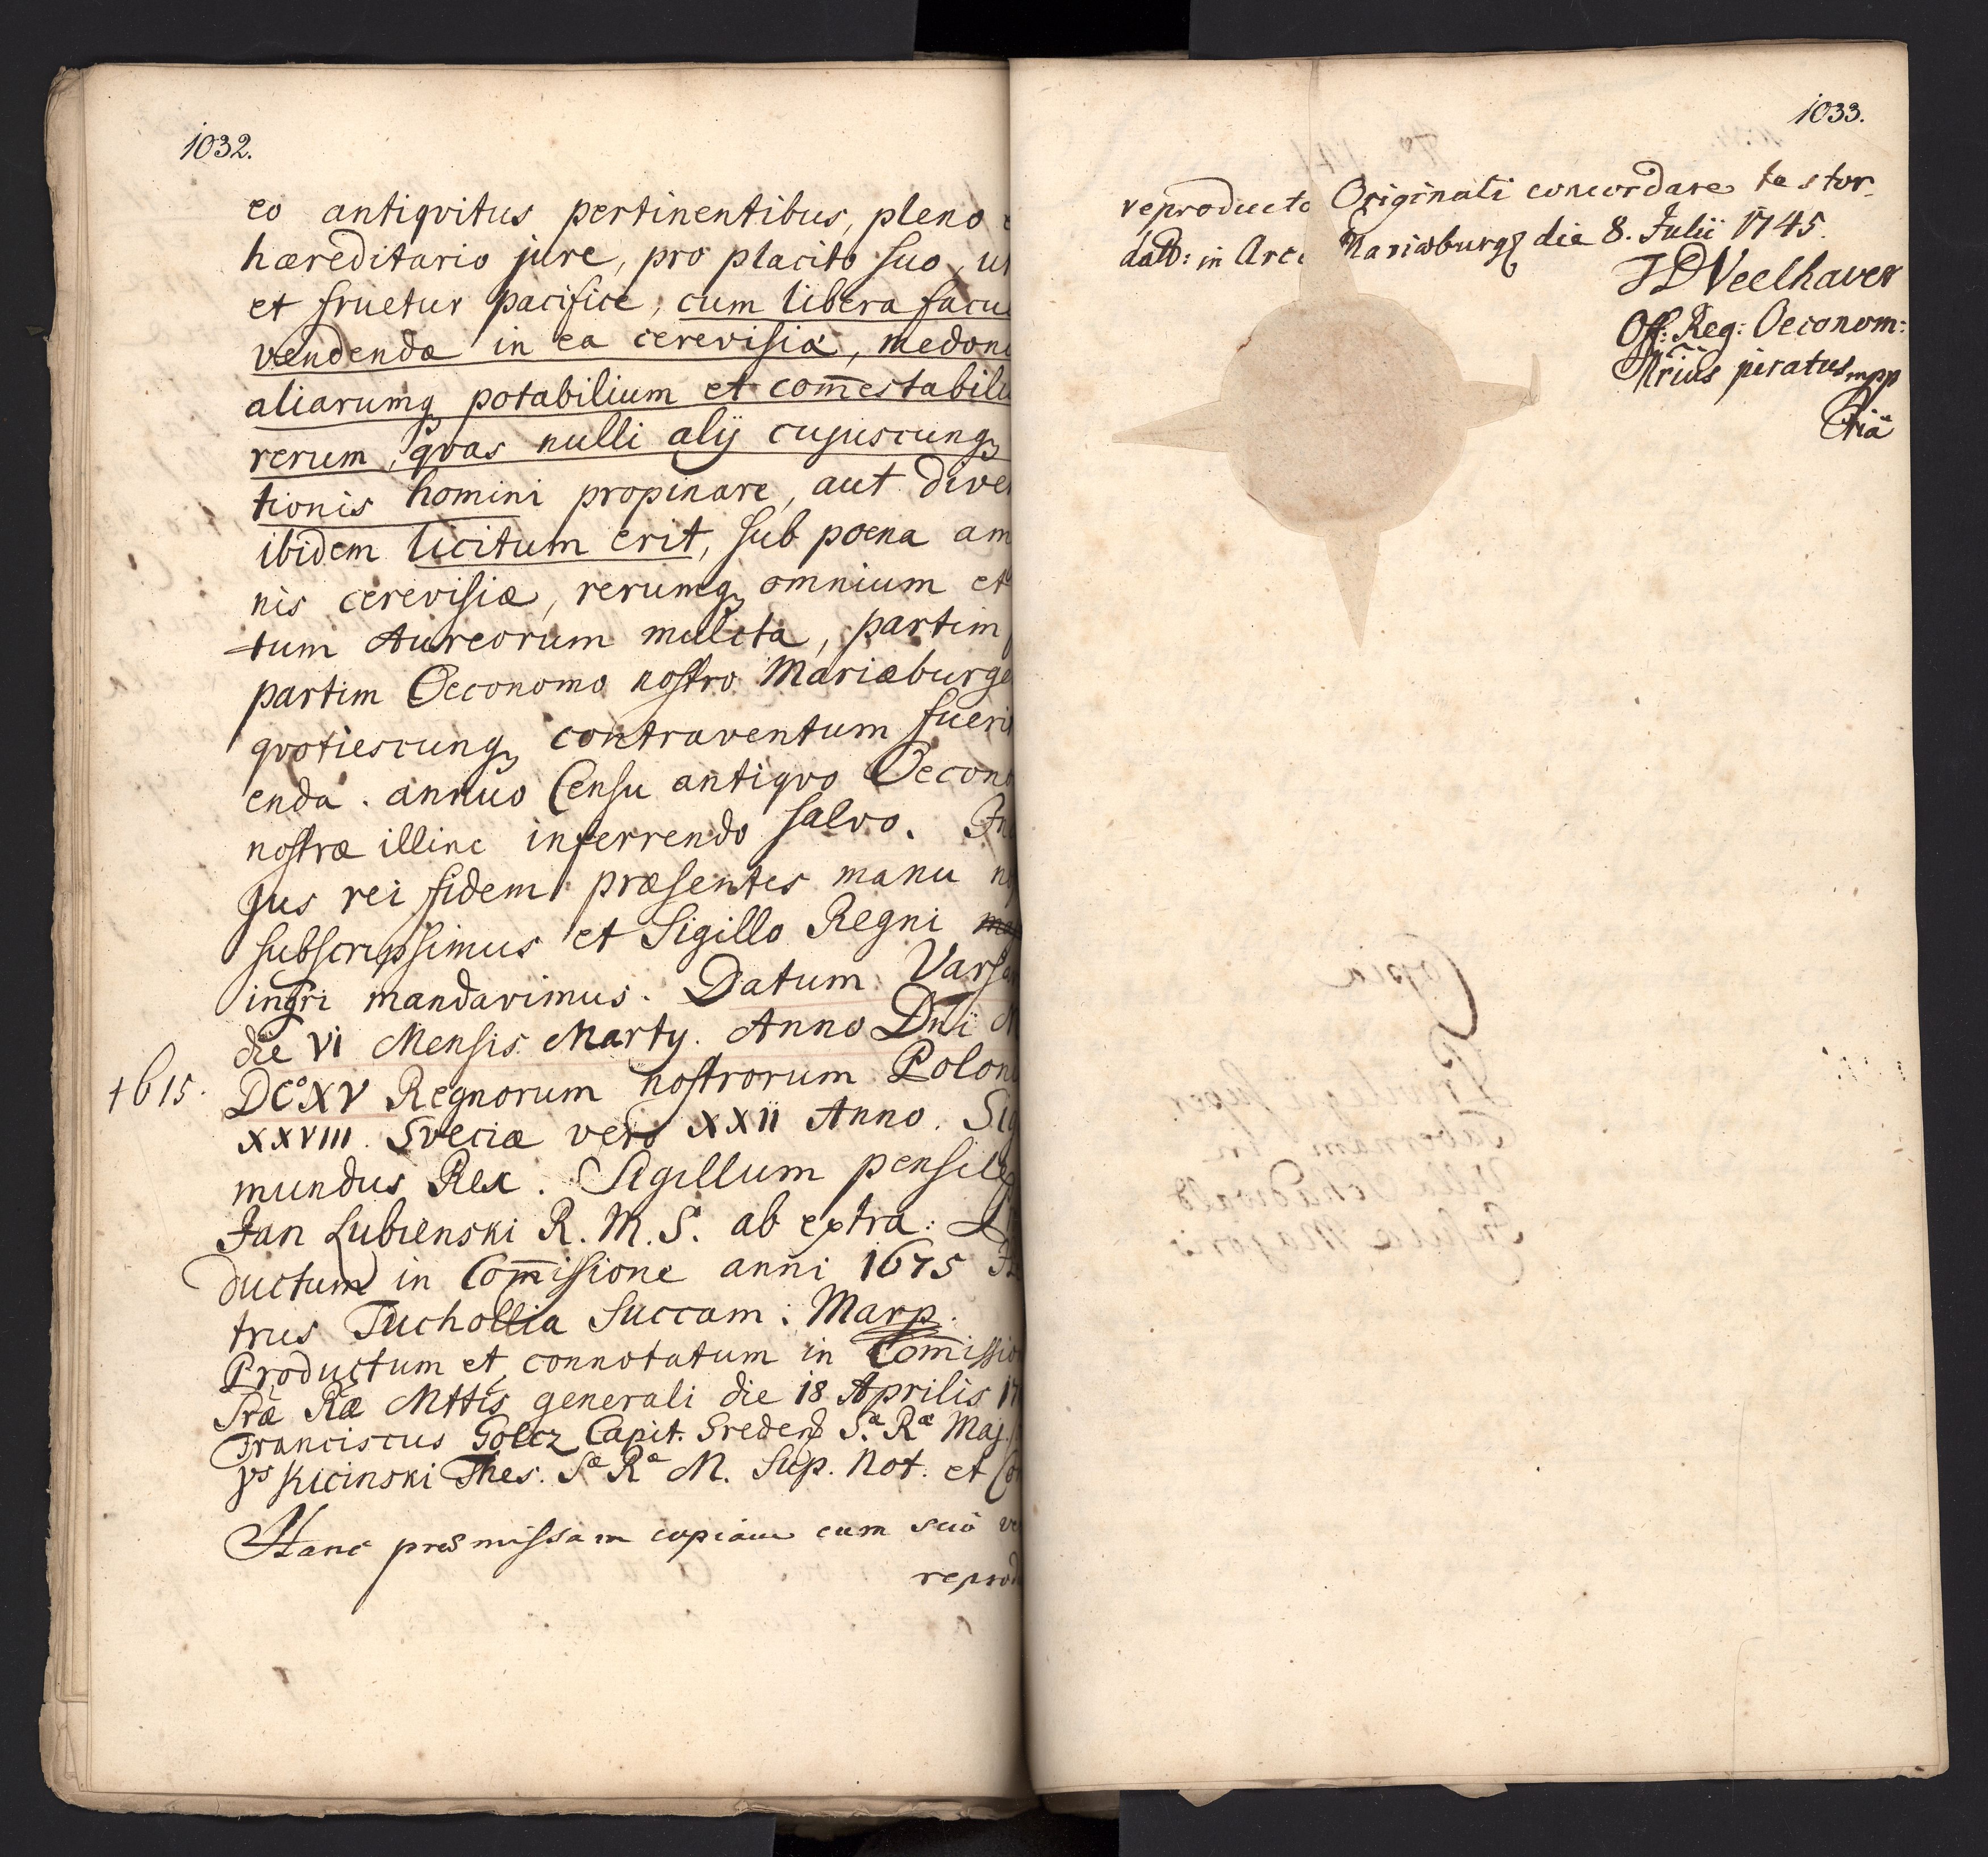 1032.
eo antiqvitus pertinentibus, pleno
hæreditario jure, pro placito suo, ut
et fruetur pacifice, cum libera facu
vendendæ in ea cerevisiæ, medon
aliarumq potabilium et com̄estabili
rerum, qvas nulli alÿ cujuscunq
tionis homini propinare, aut dive
ibidem licitum erit, sub poena am
nis cerevisiæ, rerumq omnium et
tum Aureorum mulcta, partim
partim Oeconomo nostro Mariæburge
qvotiescunq contraventum fueri
enda. annuo Censu antiqvo Oecono
nostræ illinc inferrendo salvo. In
jus rei fidem præsentes manu no
subscripsimus et Sigillo Regni
ingri mandavimus. Datum Varsa
die VI Mensis Martÿ. Anno Dni M
1615. DC°XV Regnorum nostrorum Polon
XXVIII. Sveciæ vero XXII Anno. Sig
mundus Rex. Sigillum pensile
Jan Lubienski R. M. S. ab extra:
ductum in Com̄issione anni 1675
trus Tuchollia Succam: Marp.
Productum et connotatum in Com̄issio
Sræ Ræ Mttis generali die 18 Aprilis 17
Franciscus Golcz Capit. Sredens Sæ Ræ Maj.
Kicinski Thes. Sæ Ræ M. Sup. Not. et Co
Hanc præmissam copiam cum suo ve
reprod
1033.
reproducto Originali concordare testor
datt: in Arce Mariæburg die 8. Julii 1745.
JDVeelhaver
Off: Reg: Oeconom:
Nrius juratus mpp
Copia
Privilegii super
Tabernam in
Villa Schadwald
Insulæ Majoris